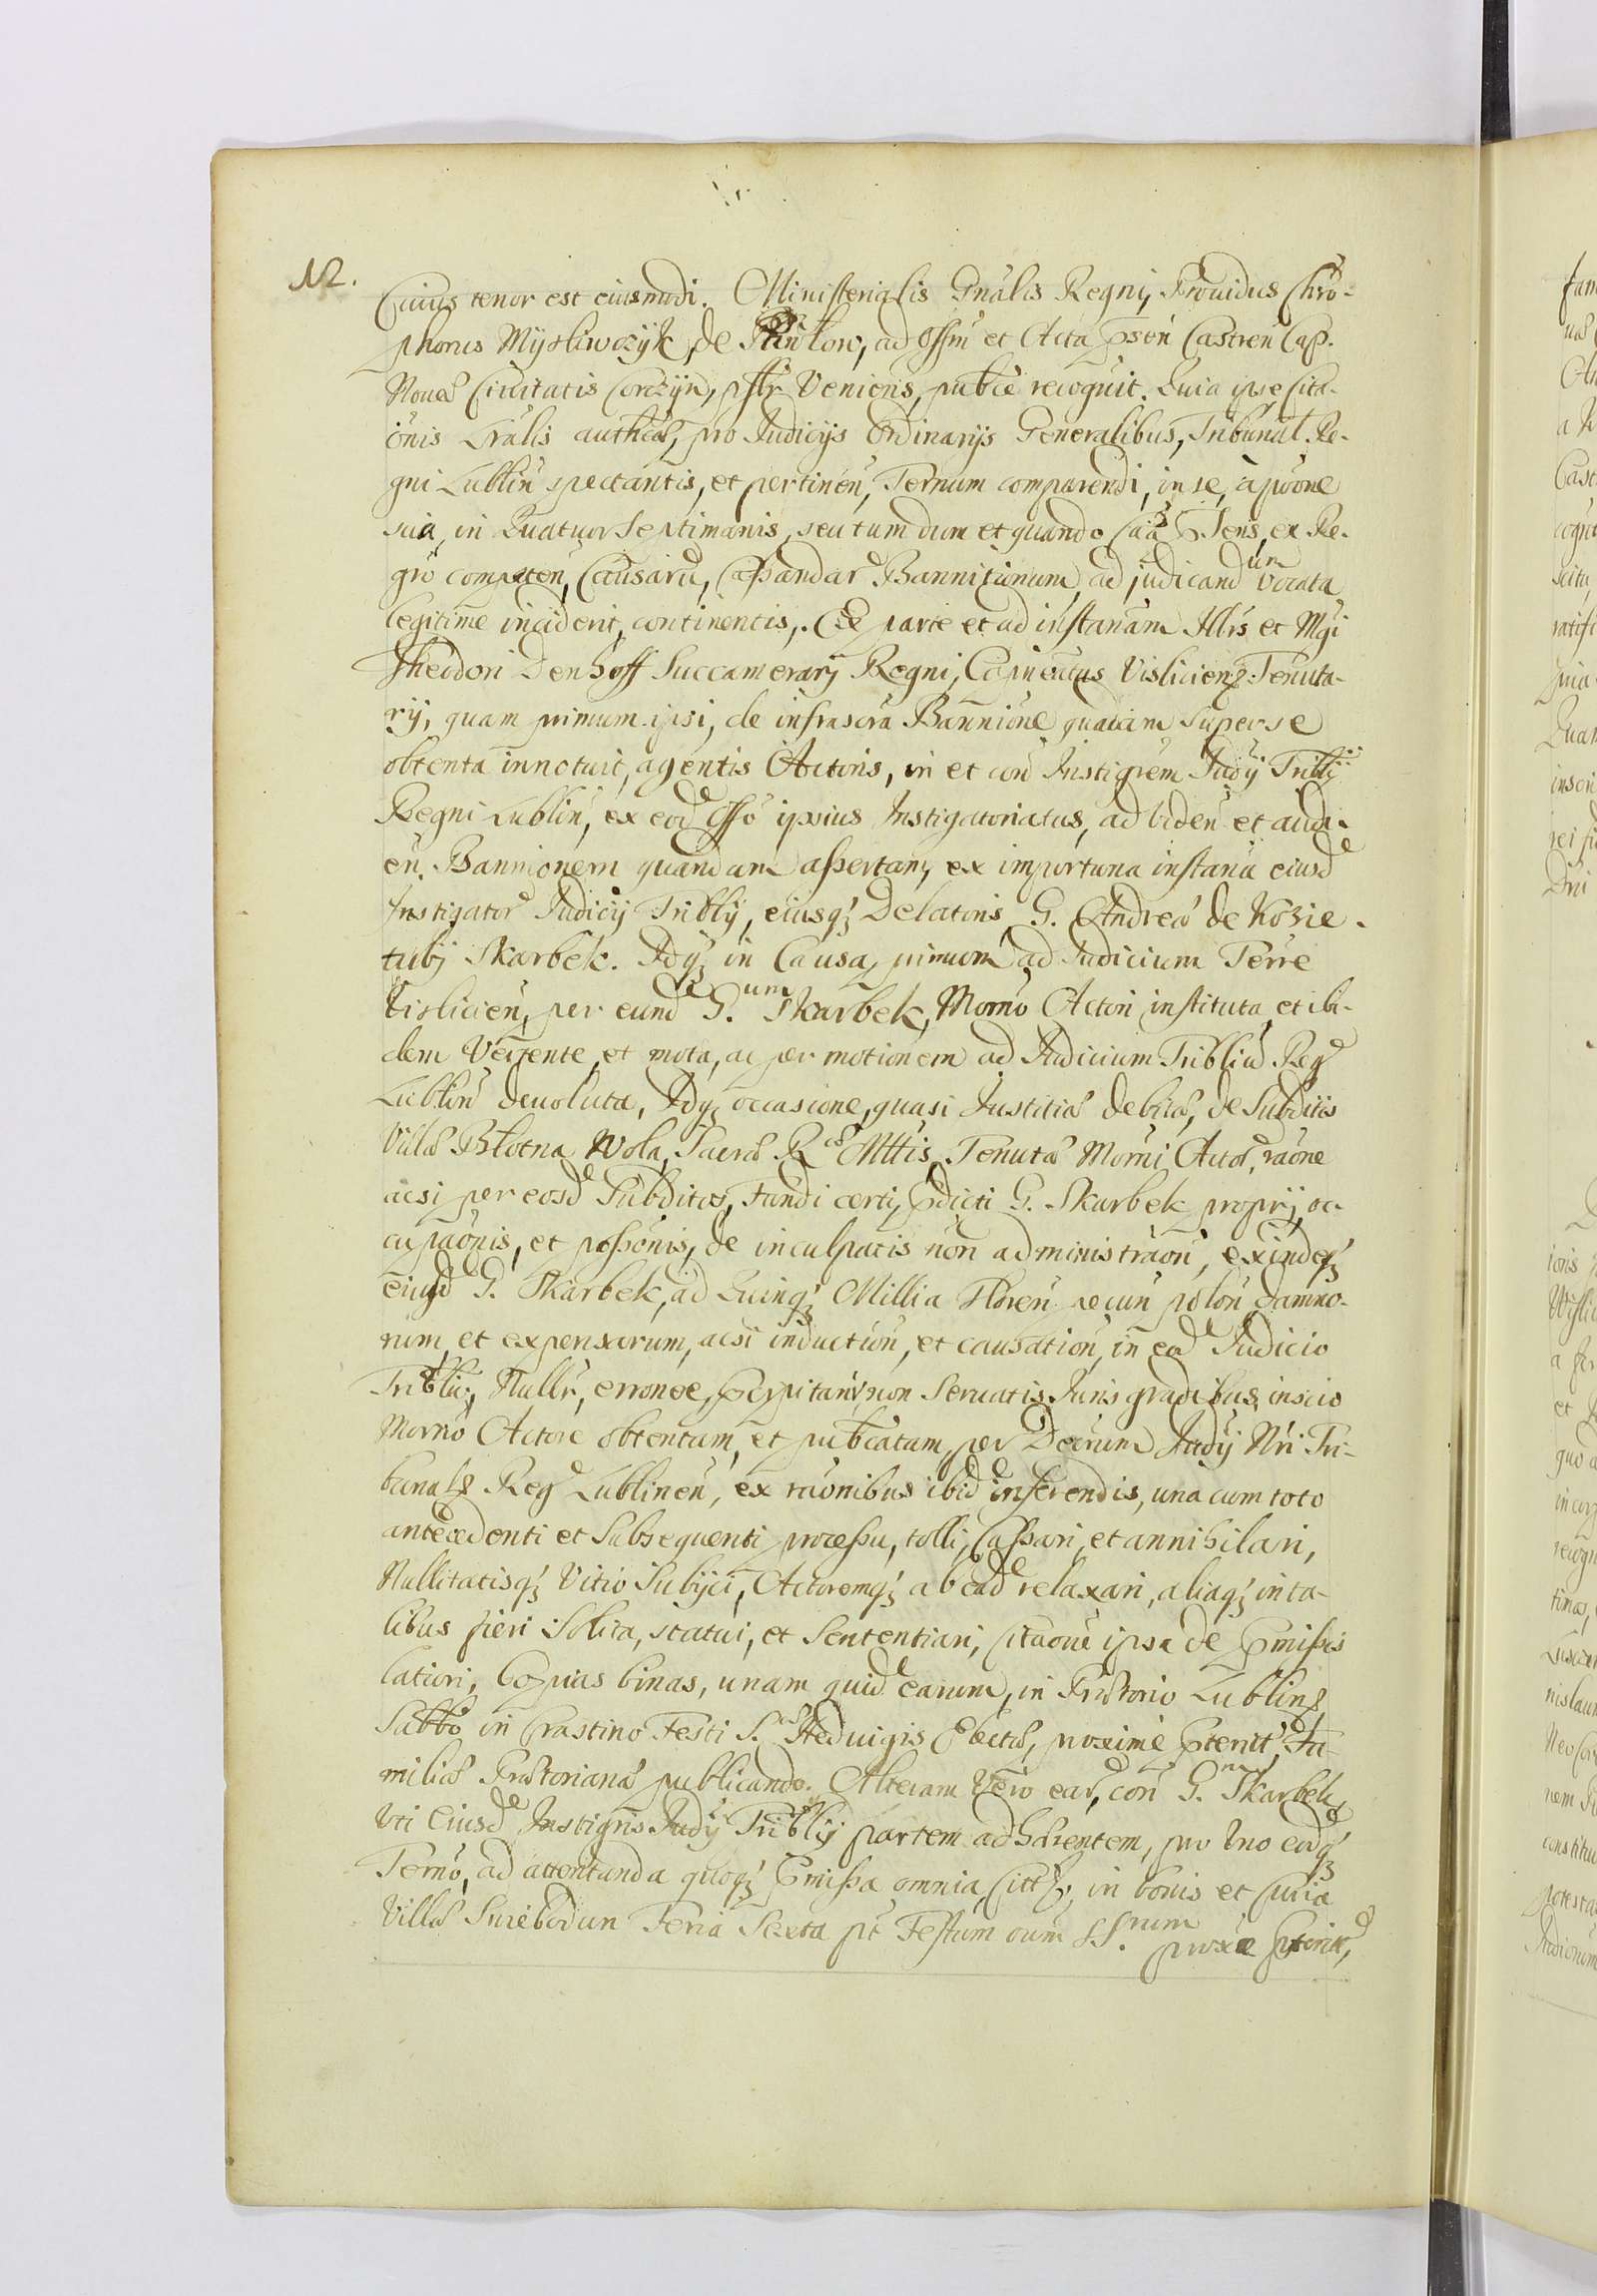 N2.
Cuius tenor est eiusmodi. Ministerialis Gnãlis Regnÿ Prouidus Chro-
phorus Mysliwczÿk de , ad Offm̃ et Acta p̃sen Castren Cap.
Nouæ Ciuitatis Corczÿn, p̃slr Veniens, publcẽ recoguit. Quia ipse Cita-
õnis Lrãlis authcæ, pro Iudicÿs Ordinarÿs Generalibus, Tribunal. Re-
gni Lublin̄ spectantis, et pertinen̄, Ternum comparendi, in se, a põone
sua, in Quatuor Septimanis, seu tum dum et quando Caã P. sens, ex Re-
grõ competen, Causarũ, Cassandar Bannitionum, ad judicandum vocata
legitime inciderit, continentis, Ex parte et ad instanãm Illrĩs et Mgĩ
Theodori Denhoff Succamerarÿ Regni, Capineatus Visliciens. Tenuta-
rÿ, quam primum ipsi, de infrascrã Bannione quadam super se
obtenta innotuit, agentis Actoris, in et con̄ Instigrem Iudÿ Tribly
Regni Lublin̄, ex eod Offo ipsius Instigatoriatus, ad viden̄ et audi-
en. Bannionem quandam assertam, ex importuna instania eiusd
Instigator Iudicÿ Triblÿ, eiusq3 Delatoris G. Andreæ de Kozie-
tulÿ Skarbek. Idq3 in Causa, primum ad Iudicium Terre
Vislicien, per eund G.um Skarbek, Morno Actori instituta, et ibi-
dem Vertente, et mota, ac per motionem ad Iudicium Triblin̄ Reg
Lublin̄ deuoluta, Idq3 occasione, quasi Iustitiæ debitæ, de Subditis
Villæ Błotna Wola, Sacræ R. Mttis, Tenutæ Morni Actor, raõne
acsi per eosd Subditos, Fundi certi, p̃dicti G. Skarbek proprÿ, oc-
cupaõnis, et possõnis, de inculpatis non administraõni, exindeq3
eiusd G. Skarbek, ad Quinq3 Millia Floren̄ pecun̄ polon̄ damno-
rum, et expensarum, acsi induction̄, et causation̄, in eod Iudicio
Triblin, Nullr, erronee, p̃cipitanr non Seruatis Iuris gradibus, inscio
Morno Actore obtentam, et publcatam, per Decrum Iudÿ Nri Tri-
bunals Reg Lublinen̄, ex raõnibus ibid inferendis, una cum toto
antecedenti et Subsequenti processu, tolli, Cassari, et annihilari,
Nullitatisq3 Vitio Subijci, Actoremq3 ab ead relaxari, aliaq3 in ta-
libus fieri Solita, statui, et Sententiari, Citaõne ipsa de P̃missis
latiori, Copias binas, unam quid earum, in Prætorio Lublins
Sabbo in Crastino Festi S. Heduigis Electæ, proxime p̃terit, Fa-
miliæ Prætorianæ publicando. Alteram Vero ear, con̄ G.m Skarbek
Vti Eiusd Instigris Iudÿ Triblÿ partem adhærentem, pro Vno eodq3
Terno, ad attentanda quoq3 P̃missa omnia Citt, in bonis et Curia
Villæ Swiebodun Feria Sexta pt Festum oum SS.rum proxe p̃terit,